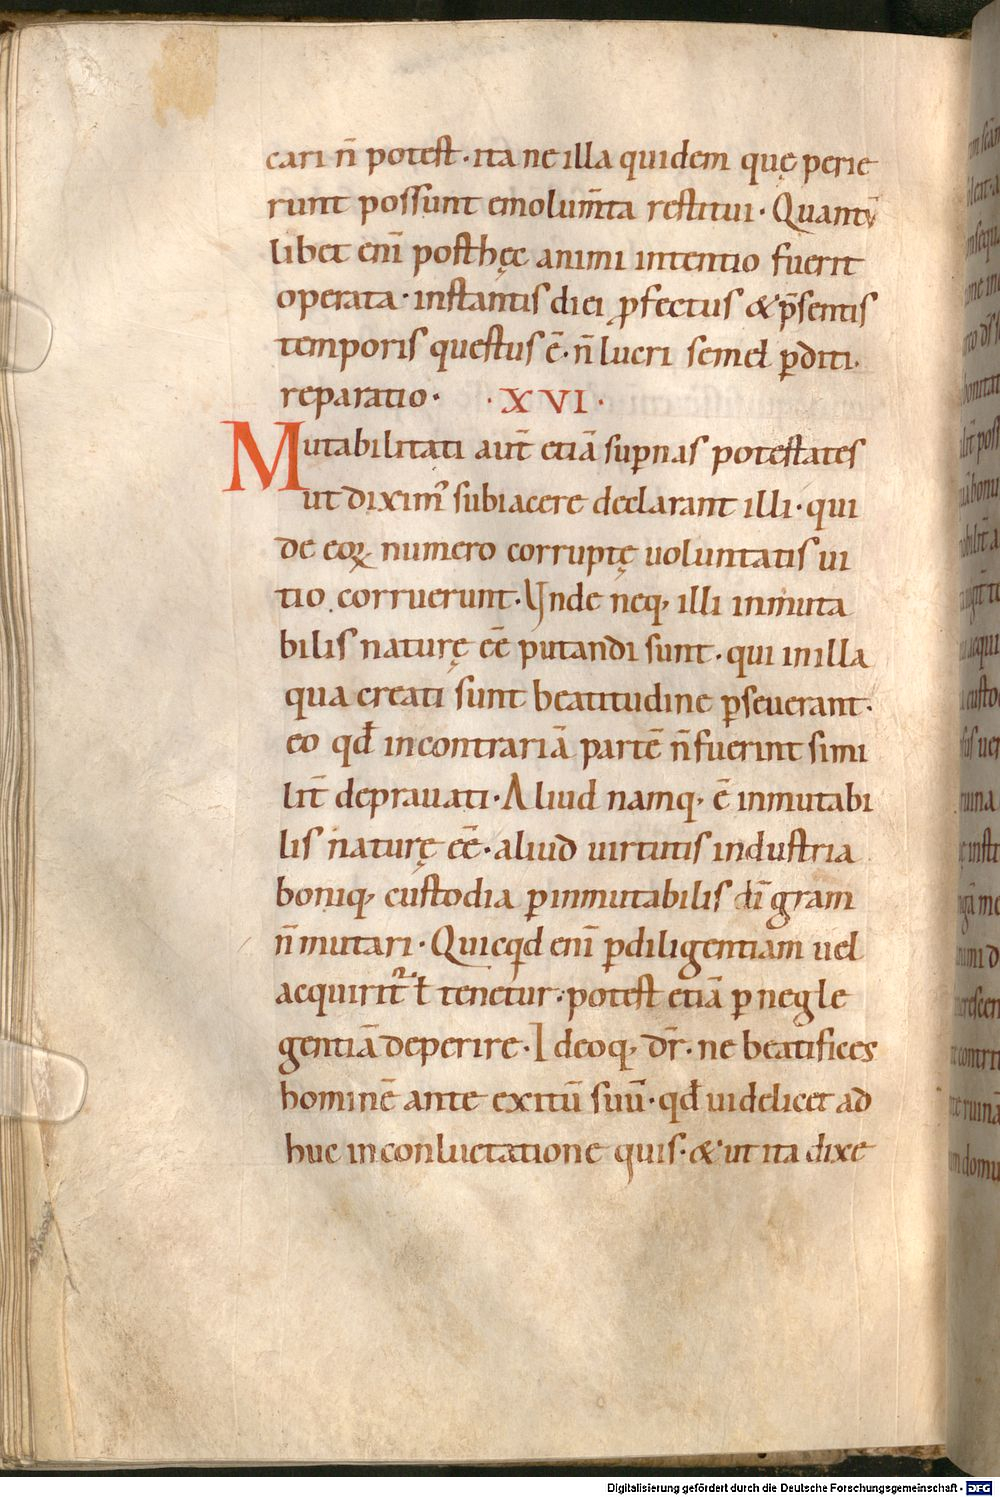 cari n̄ potest · ita ne illa quidem quę perie
runt possunt emolum̄ta restitui · Quantū
libet eni̅ posthęc animi intentio fuerit
operata · instantis diei ꝓfectus & p̄sentis
temporis questus ē · n̄ lucri semel ꝑditi ·
reparatio · · XVI ·
Mutabilitati aut̄ etiā supnas potestates
ut dixim᾽ subiacere declarant illi · qui
de eoꝝ numero corruptę uoluntatis ui
tio corruerunt · Unde neq; illi inmuta
bilis naturę eē putandi sunt · qui in illa
qua creati sunt beatitudine ꝑseuerant ·
eo qđ in contrariā partē n̄ fuerint simi
lit̄ deprauati · Aliud namq; ē inmutabi
lis naturę eē · aliud uirtutis industria
boniq; custodia ꝑ inmutabilis di̅ gram
n̄ mutari · Quicqd eni̅ ꝑ diligentiam uel
acquirit᷑ ł tenetur · potest etiā ꝑ negle
gentiā deperire · Ideoq; dr̄ · ne beatifices
hominē ante exitū suū · qđ uidelicet ad
huc in conluctatione quis · & ut ita dixe
Digitalisierung gefördert durch die Deutsche Forschungsgemeinschaft - DFG